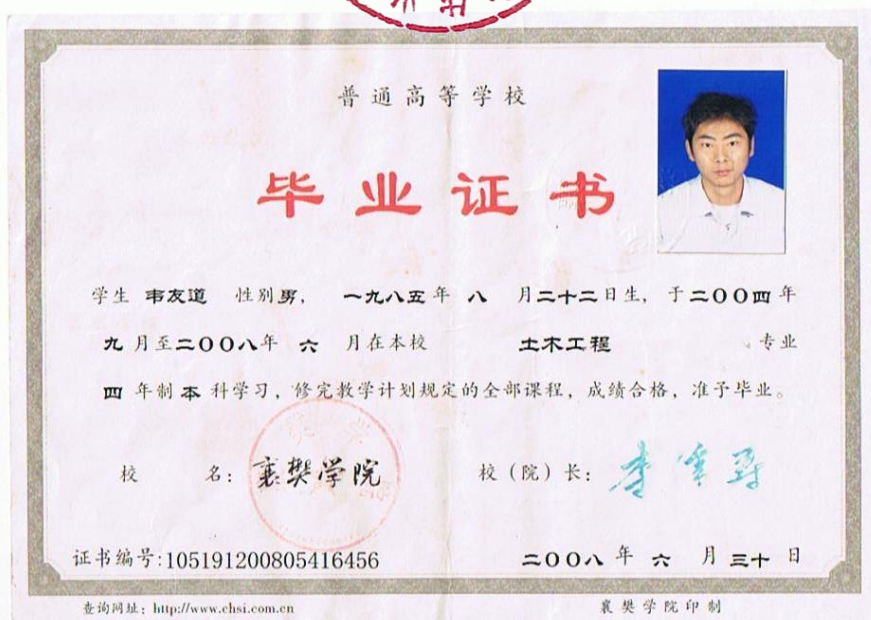 普通高等学校
毕业证书
学生 韦友道 性别男， 一九八五年 八 月二十二日生，于二〇〇四年
九 月至二〇〇八年 六 月在本校 土木工程 专业
四 年制 本 科学习，修完教学计划规定的全部课程，成绩合格，准予毕业。
校 名：襄樊学院 校（院）长：
证书编号:105191200805416456 二〇〇八 年 六 月 三十 日
查询网址：http://www.chsi.com.cn 襄樊学院印制